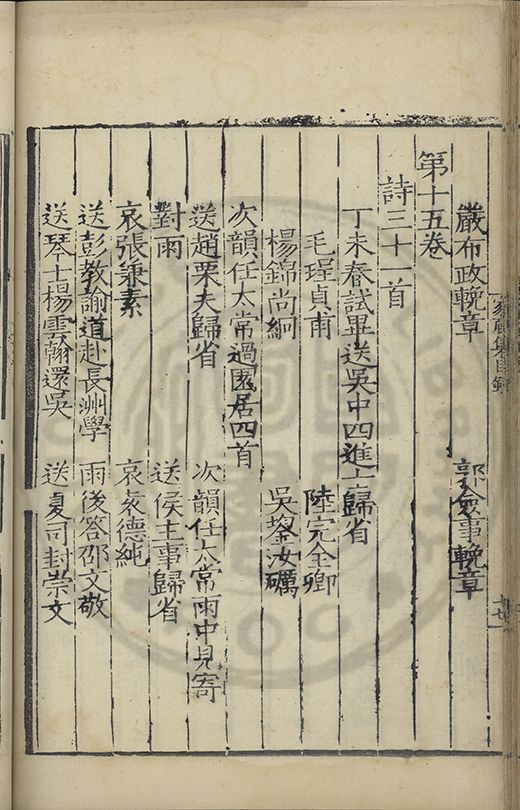 嚴布政輓章　郭僉事輓章
第十五卷
詩三十一首
丁未春試畢送吳中四進士歸省
毛珵貞甫　陸完全卿
楊錦尚絅　吳鋆汝礪
次韻任太常過園居四首
送趙栗夫歸省　次韻任太常雨中見寄
對雨　送侯主事歸省
哀張兼素　哀袁德純
送彭教諭道赴長洲學　雨後答邵文敬
送琴士楊雲翰還吳　送夏司封崇文
家藏集目錄